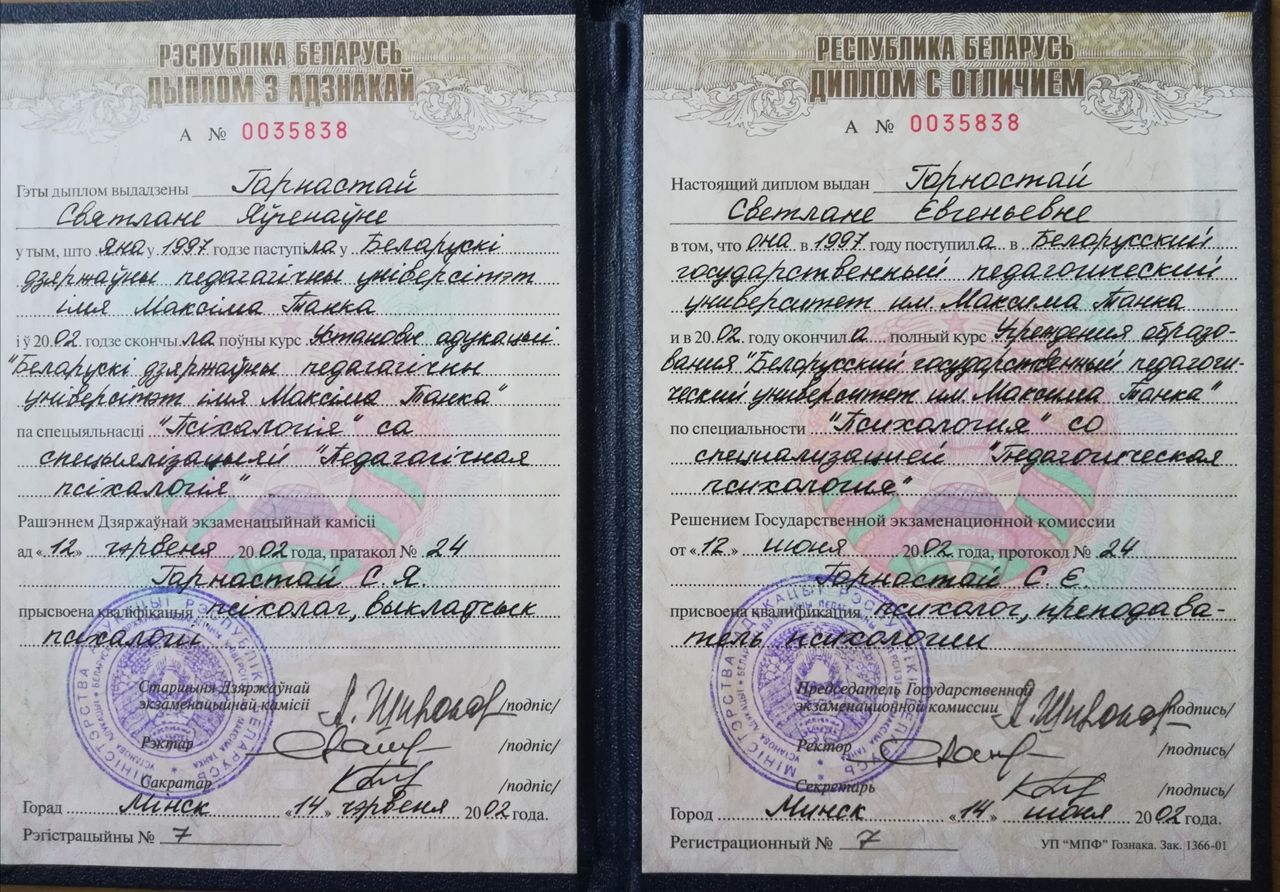 РЭСПУБЛІКА БЕЛАРУСЬ
ДЫПЛОМ З АДЗНАКАЙ
А № 0035838
Гэты дыплом выдадзены Гарнастай
Святлане Яўгенаўне
у тым, што яна у 1997 годзе паступіла у Беларускі
дзяржаўны педагагічны універсітэт
імя Максіма Танка
і ў 2002 годзе скончыла поўны курс Установы адукацыі
"Беларускі дзяржаўны педагагічны
універсітэт імя Максіма Танка"
па спецыяльнасці "Псіхалогія" са
спецыялізацыяй "Педагагічная
псіхалогія"
Рашэннем Дзяржаўнай экзаменацыйнай камісіі
ад «12» чэрвеня 2002 года, пратакол № 24
Гарнастай С. Я.
прысвоена кваліфікацыя псіхолаг, выкладчык
псіхалогіі
Старшыня Дзяржаўнай
экзаменацыйнай камісіі /подпіс/
Рэктар /подпіс/
Сакратар /подпіс/
Горад Мінск «14» чэрвеня 2002 года.
Рэгістрацыйны № 7
РЕСПУБЛИКА БЕЛАРУСЬ
ДИПЛОМ С ОТЛИЧИЕМ
А № 0035838
Настоящий диплом выдан Гарностай
Светлане Евгеньевне
в том, что она в 1997 году поступила в Белорусский
государственный педагогический
университет им. Максима Танка
и в 2002 году окончила полный курс Учреждения образо-
вания "Белорусский государственный педагоги-
ческий университет им. Максима Танка"
по специальности "Психология" со
специализацией "Педагогическая
психология"
Решением Государственной экзаменационной комиссии
от «12» июня 2002 года, протокол № 24
Гарностай С. Е.
присвоена квалификация психолог, преподава-
тель психологии
Председатель Государственной
экзаменационной комиссии /подпись/
Ректор /подпись/
Секретарь /подпись/
Город Минск «14» июня 2002 года.
Регистрационный № 7
УП "МПФ" Гознака. Зак. 1366-01